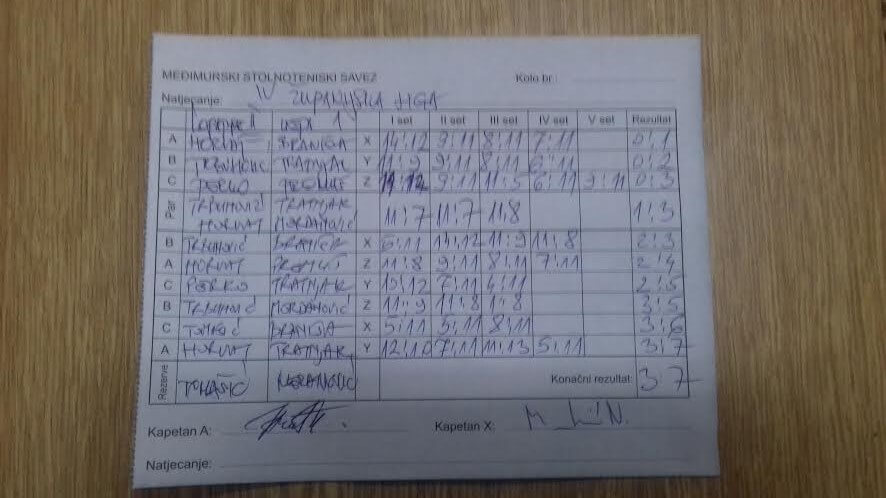 MEĐIMURSKI STOLNOTENISKI SAVEZ Kolo br.:
Natjecanje: IV ŽUPANIJSKA LIGA
I set II set III set IV set V set Rezultat
A HORVAT BRANIŠA X 14:12 9:11 8:11 7:11 0:1
B TRBUHOVIĆ TRATNJAK Y 11:9 9:11 8:11 6:11 0:2
C Z 9:11 11:5 6:11 9:11 0:3
TRBUHOVIĆ TRATNJAK
HORVAT MORDANOVIĆ 11:7 11:7 11:8 1:3
B TRBUHOVIĆ X 6:11 14:12 11:9 11:8 2:3
A HORVAT Z 11:8 9:11 8:11 7:11 2:4
C TRATNJAK Y 10:12 7:11 4:11 2:5
B TRBUHOVIĆ MORDANOVIĆ Z 11:9 11:8 11:8 3:5
C X 5:11 5:11 8:11 3:6
A HORVAT TRATNJAK Y 12:10 7:11 11:13 5:11 3:7
Rezerve TOMAŠIĆ Konačni rezultat: 3 7
Kapetan A: Kapetan X:
Natjecanje: